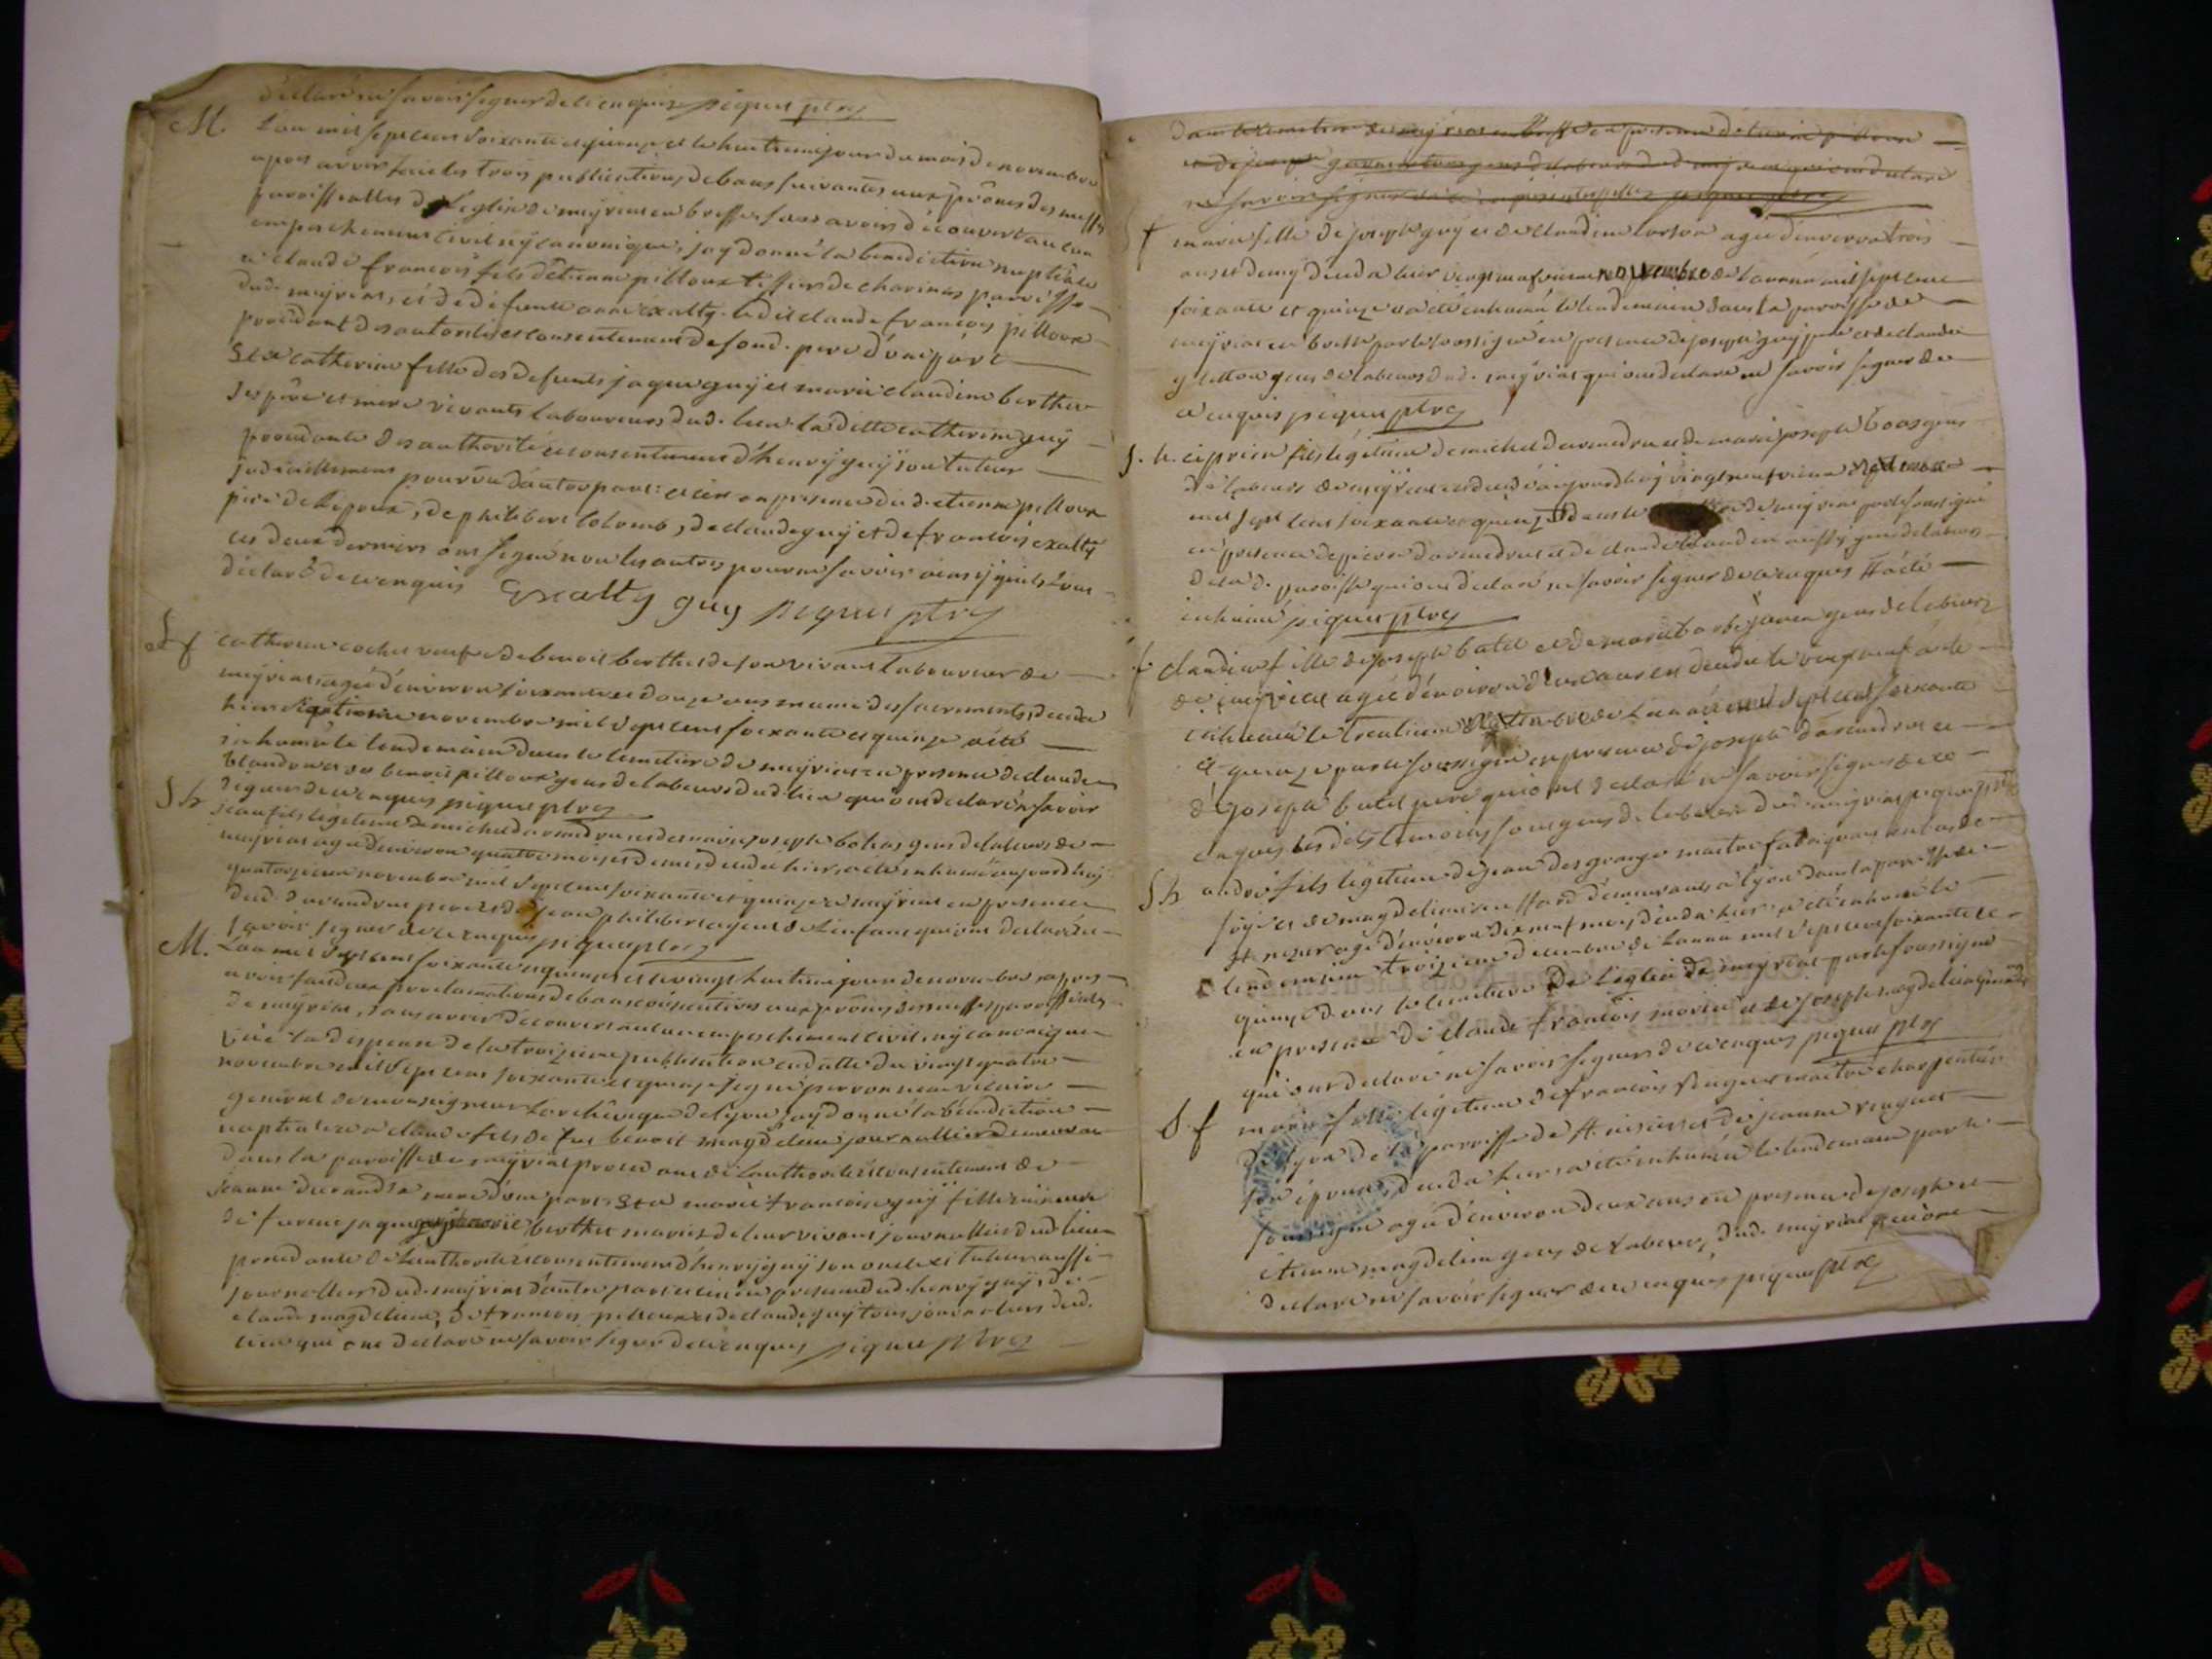 déclaré ne savoir signer de ce enquis piquet ptre
M. L'an mil sept cens soixante et quinze et le huitieme jour du mois de novembre
apres avoir fait les trois publications de bans suivantes aux prônes des messes
paroissialles de l'eglise de meyriat en bresse sans avoir découvert aucun
empechement civil ny canonique, j'ay donné la benediction nuptiale
a claude françois fils d'étienne pilloux tissier de charinas paroisse
dud. meyriat, et de défunte anne exalty. ledit claude françois pilloux
procedant des autorité et consentement de sond. pere d'une part
Et a catherine fille des defunts jaque guy et marie claudine berthet
ses pere et mere vivants laboureurs dud. lieu laditte catherine guy
procedante des authorité et consentement d'henry guy son tuteur
judiciellement pourvu d'autre part: et ce en presence dud. etienne pilloux
pere de l'epoux, de philibert colomb, de claude guy et de françois exalty
ces deux derniers ont signé non les autres pour ne savoir ainsy qu'ils l'ont
déclaré de ce enquis Exalty guy piquet ptre
Sf catherine cochet veufve de benoit berthet de son vivant laboureur de
meyriat, agée d'environ soixante et douze ans munie des sacrements, decedée
hier septieme novembre mil sept cens soixante et quinze a été
inhumée le lendemain dans le cimetiere de meyriat en presence de claude
blandon et de benoit pilloux gens de labeurs dud. lieu qui ont declaré ne savoir
signer de ce enquis piquet ptre
Sh jean fils légitime de michel davaudrue et de marie joseph bohas gens de labeurs de
meyriat agé d'environ quatre mois et demi, decedé hier, a été inhumé aujourd'huy
quatorzieme novembre mil sept cens soixante et quinze a meyriat en presence
dud. davaudrue pere et de jean philibert ayeul de l'enfant qui ont declaré ne
savoir signer de ce enquis piquet ptre
M. L'an mil sept cens soixante et quinze et le vingt huitieme jour de novembre apres
avoir fait deux proclamations de bans consecutives aux prônes des messes paroissiales
de meyriat, sans avoir decouvert aucun empechement civil, ny canonique
Vüe la dispense de la troizieme publication en datte du vingt quatre
novembre mil sept cens soixante et quinze signé perronneau vicaire
general de monseigneur l'archêveque de lyon, j'ay donné la bénédiction
nuptiale a claude fils de feu benoit magdelein journallier demeurant
dans la paroisse de meyriat procedant de l'authorité et consentement de
jeanne durand sa mere d'une part; Et a marie françoise guy fille mineure
de furent jaque guy et marie berthet mariés de leur vivant journalliers dud. lieu
procedante de l'authorité et consentement d'henry guy son oncle et tuteur aussi
journallier dud. meyriat d'autre part et ce en presence dud. henry guy, de
claude magdelein, de françois pilloux et de claude guy tous journaliers dud.
lieu qui ont declaré ne savoir signer de ce enquis piquet ptre
dans le cimetiere de meyriat en bresse en presence de pilloux
et de joseph gens de labeurs dud. meyriat qui ont declaré
ne savoir signer de ce piquet ptre
Sf marie fille de joseph guy et de claudine agée d'environ trois
ans et demy decedée hier vingt neufvieme novembre de l'année mil sept cens
soixante et quinze a été inhumée le lendemain dans la paroisse de
meyriat en bresse par le soussigné en presence de joseph guy pere et de claude
gens de labeurs dud. meyriat qui ont declaré ne savoir signer de
ce enquis piquet ptre
S. h. ciprien fils légitime de michel davaudrue et de marie joseph bohas gens
de labeurs de meyriat decedé aujourd'huy vingt neufvieme
mil sept cens soixante et quinze dans le de meyriat par le soussigné
en presence de pierre davaudrue et de claude aussy gens de labeurs
de lad. paroisse qui ont déclaré ne savoir signer de ce enquis Il a été
inhumé piquet ptre
f claudine fille de joseph batel et de marie gens de labeurs
de meyriat agée d'environ deux ans est decedée le vingt neuf a été
inhumée le trentieme de l'année mil sept cens soixante
et quinze par le soussigné en presence de joseph davaudrue et
de joseph batel pere qui ont déclaré ne savoir signer de ce
enquis lesdits témoins sont gens de labeurs dud. meyriat piquet ptre
Sh andré fils legitime de jean desgrange maitre fabriquant en bas de
soye et de magdeleine demeurants a lyon dans la paroisse de
St nizier agé d'environ dix neuf mois, decedé hier a été inhumé le
lendemain troizieme decembre de l'année mil sept cens soixante et
quinze dans le cimetiere de l'eglise de meyriat par le soussigné
en presence de claude françois morel et de joseph magdelein
qui ont declaré ne savoir signer de ce enquis piquet ptre
S. f marie fille légitime de françois maitre charpentier
de lyon de la paroisse de St nizier et de jeanne
son épouse, decedée hier a été inhumée le lendemain par le
soussigné agée d'environ deux ans en presence de joseph et
étienne magdelein gens de labeurs dud. meyriat qui ont
declaré ne savoir signer de ce enquis piquet ptre